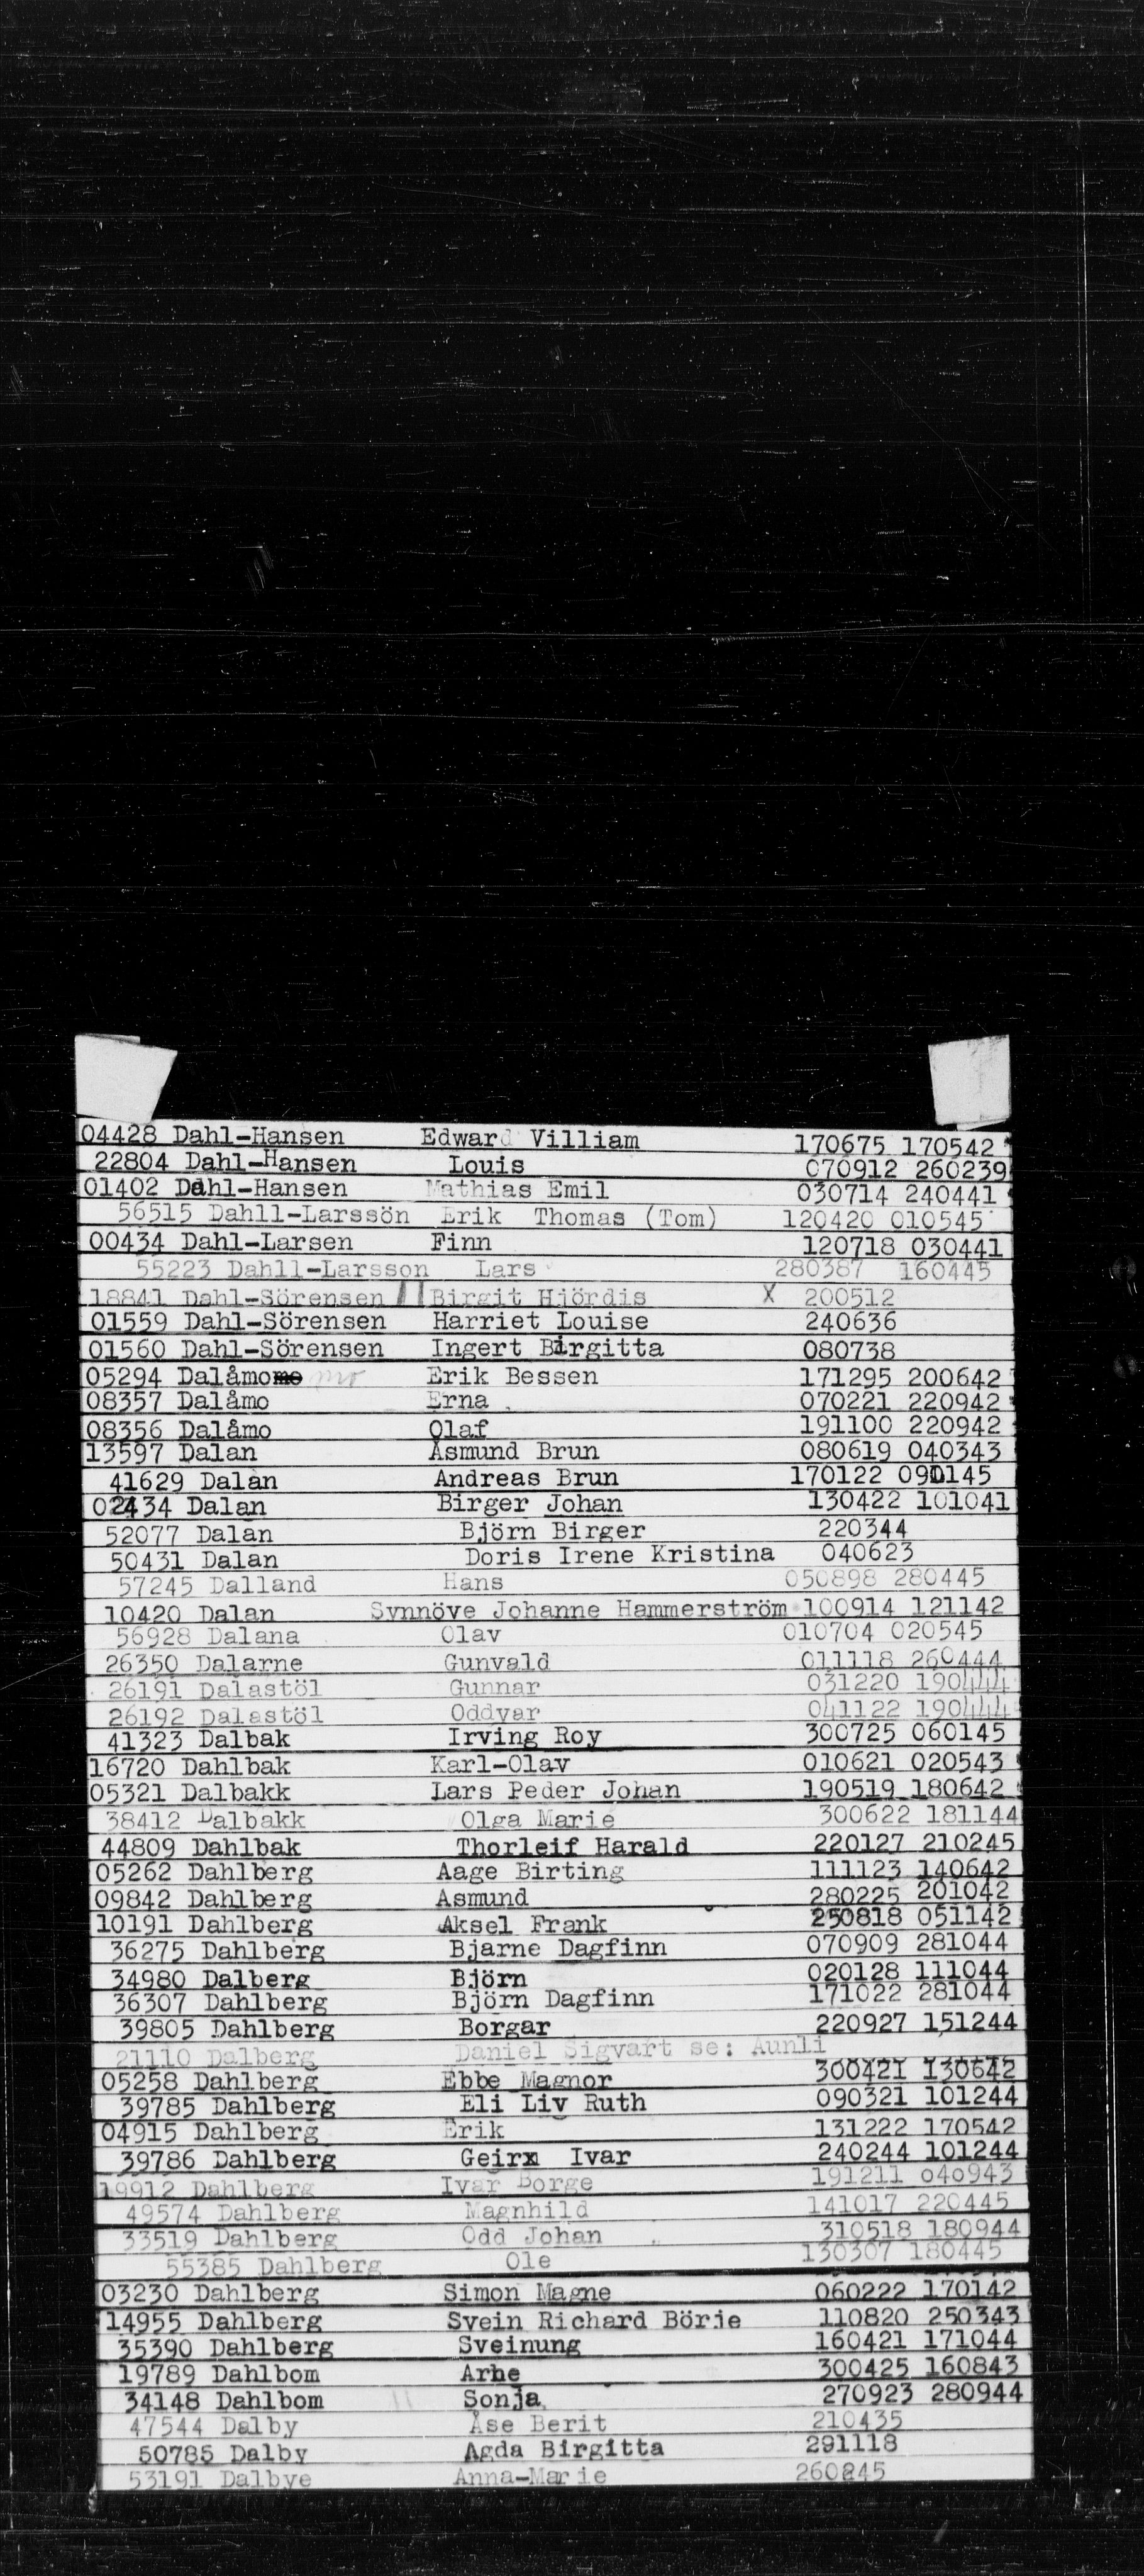 04428 Dahl-Hansen Edward Villiam 170675 170542
22804 Dahl-Hansen Louis 070912 260239
01402 Dahl-Hansen Mathias Emil 030714 240441
56515 Dahll-Larssön Erik Thomas (Tom) 120420 010545
00434 Dahl-Larsen Finn 120718 030441
55223 Dahll-Larsson Lars 280387 160445
18841 Dahl-Sörensen Birgit Hjördis X 200512
01559 Dahl-Sörensen Harriet Louise 240636
01560 Dahl-Sörensen Ingert Birgitta 080738
05294 Dalåmo mo Erik Bessen 171295 200642
08357 Dalåmo Erna 070221 220942
08356 Dalåmo Olaf 191100 220942
13597 Dalan Åsmund Brun 080619 040343
41629 Dalan Andreas Brun 170122 090145
02434 Dalan Birger Johan 130422 101041
52077 Dalan Björn Birger 220344
50431 Dalan Doris Irene Kristina 040623
57245 Dalland Hans 050898 280445
10420 Dalan Synnöve Johanne Hammerström 100914 121142
56928 Dalana Olav 010704 020545
26350 Dalarne Gunvald 011118 260444
26191 Dalastöl Gunnar 031220 190444
26192 Dalastöl Oddvar 041122 190444
41323 Dalbak Irving Roy 300725 060145
16720 Dahlbak Karl-Olav 010621 020543
05321 Dalbakk Lars Peder Johan 190519 180642
38412 Dalbakk Olga Marie 300622 181144
44809 Dahlbak Thorleif Harald 220127 210245
05262 Dahlberg Aage Birting 111123 140642
09842 Dahlberg Asmund 280225 201042
10191 Dahlberg Aksel Frank 250818 051142
36275 Dahlberg Bjarne Dagfinn 070909 281044
34980 Dalberg Björn 020128 111044
36307 Dahlberg Björn Dagfinn 171022 281044
39805 Dahlberg Borgar 220927 151244
21110 Dalberg Daniel Sigvart se: Aunli
05258 Dahlberg Ebbe Magnor 300421 130642
39785 Dahlberg Eli Liv Ruth 090321 101244
04915 Dahlberg Erik 131222 170542
39786 Dahlberg Geirx Ivar 240244 101244
19912 Dahlberg Ivar Borge 191211 040943
49574 Dahlberg Magnhild 141017 220445
33519 Dahlberg Odd Johan 310518 180944
55385 Dahlberg Ole 130307 180445
03230 Dahlberg Simon Magne 060222 170142
14955 Dahlberg Svein Richard Börje 110820 250343
35390 Dahlberg Sveinung 160421 171044
19789 Dahlbom Arne 300425 160843
34148 Dahlbom Sonja 270923 280944
47544 Dalby Åse Berit 210435
50785 Dalby Agda Birgitta 291118
53191 Dalbye Anna-Marie 260845